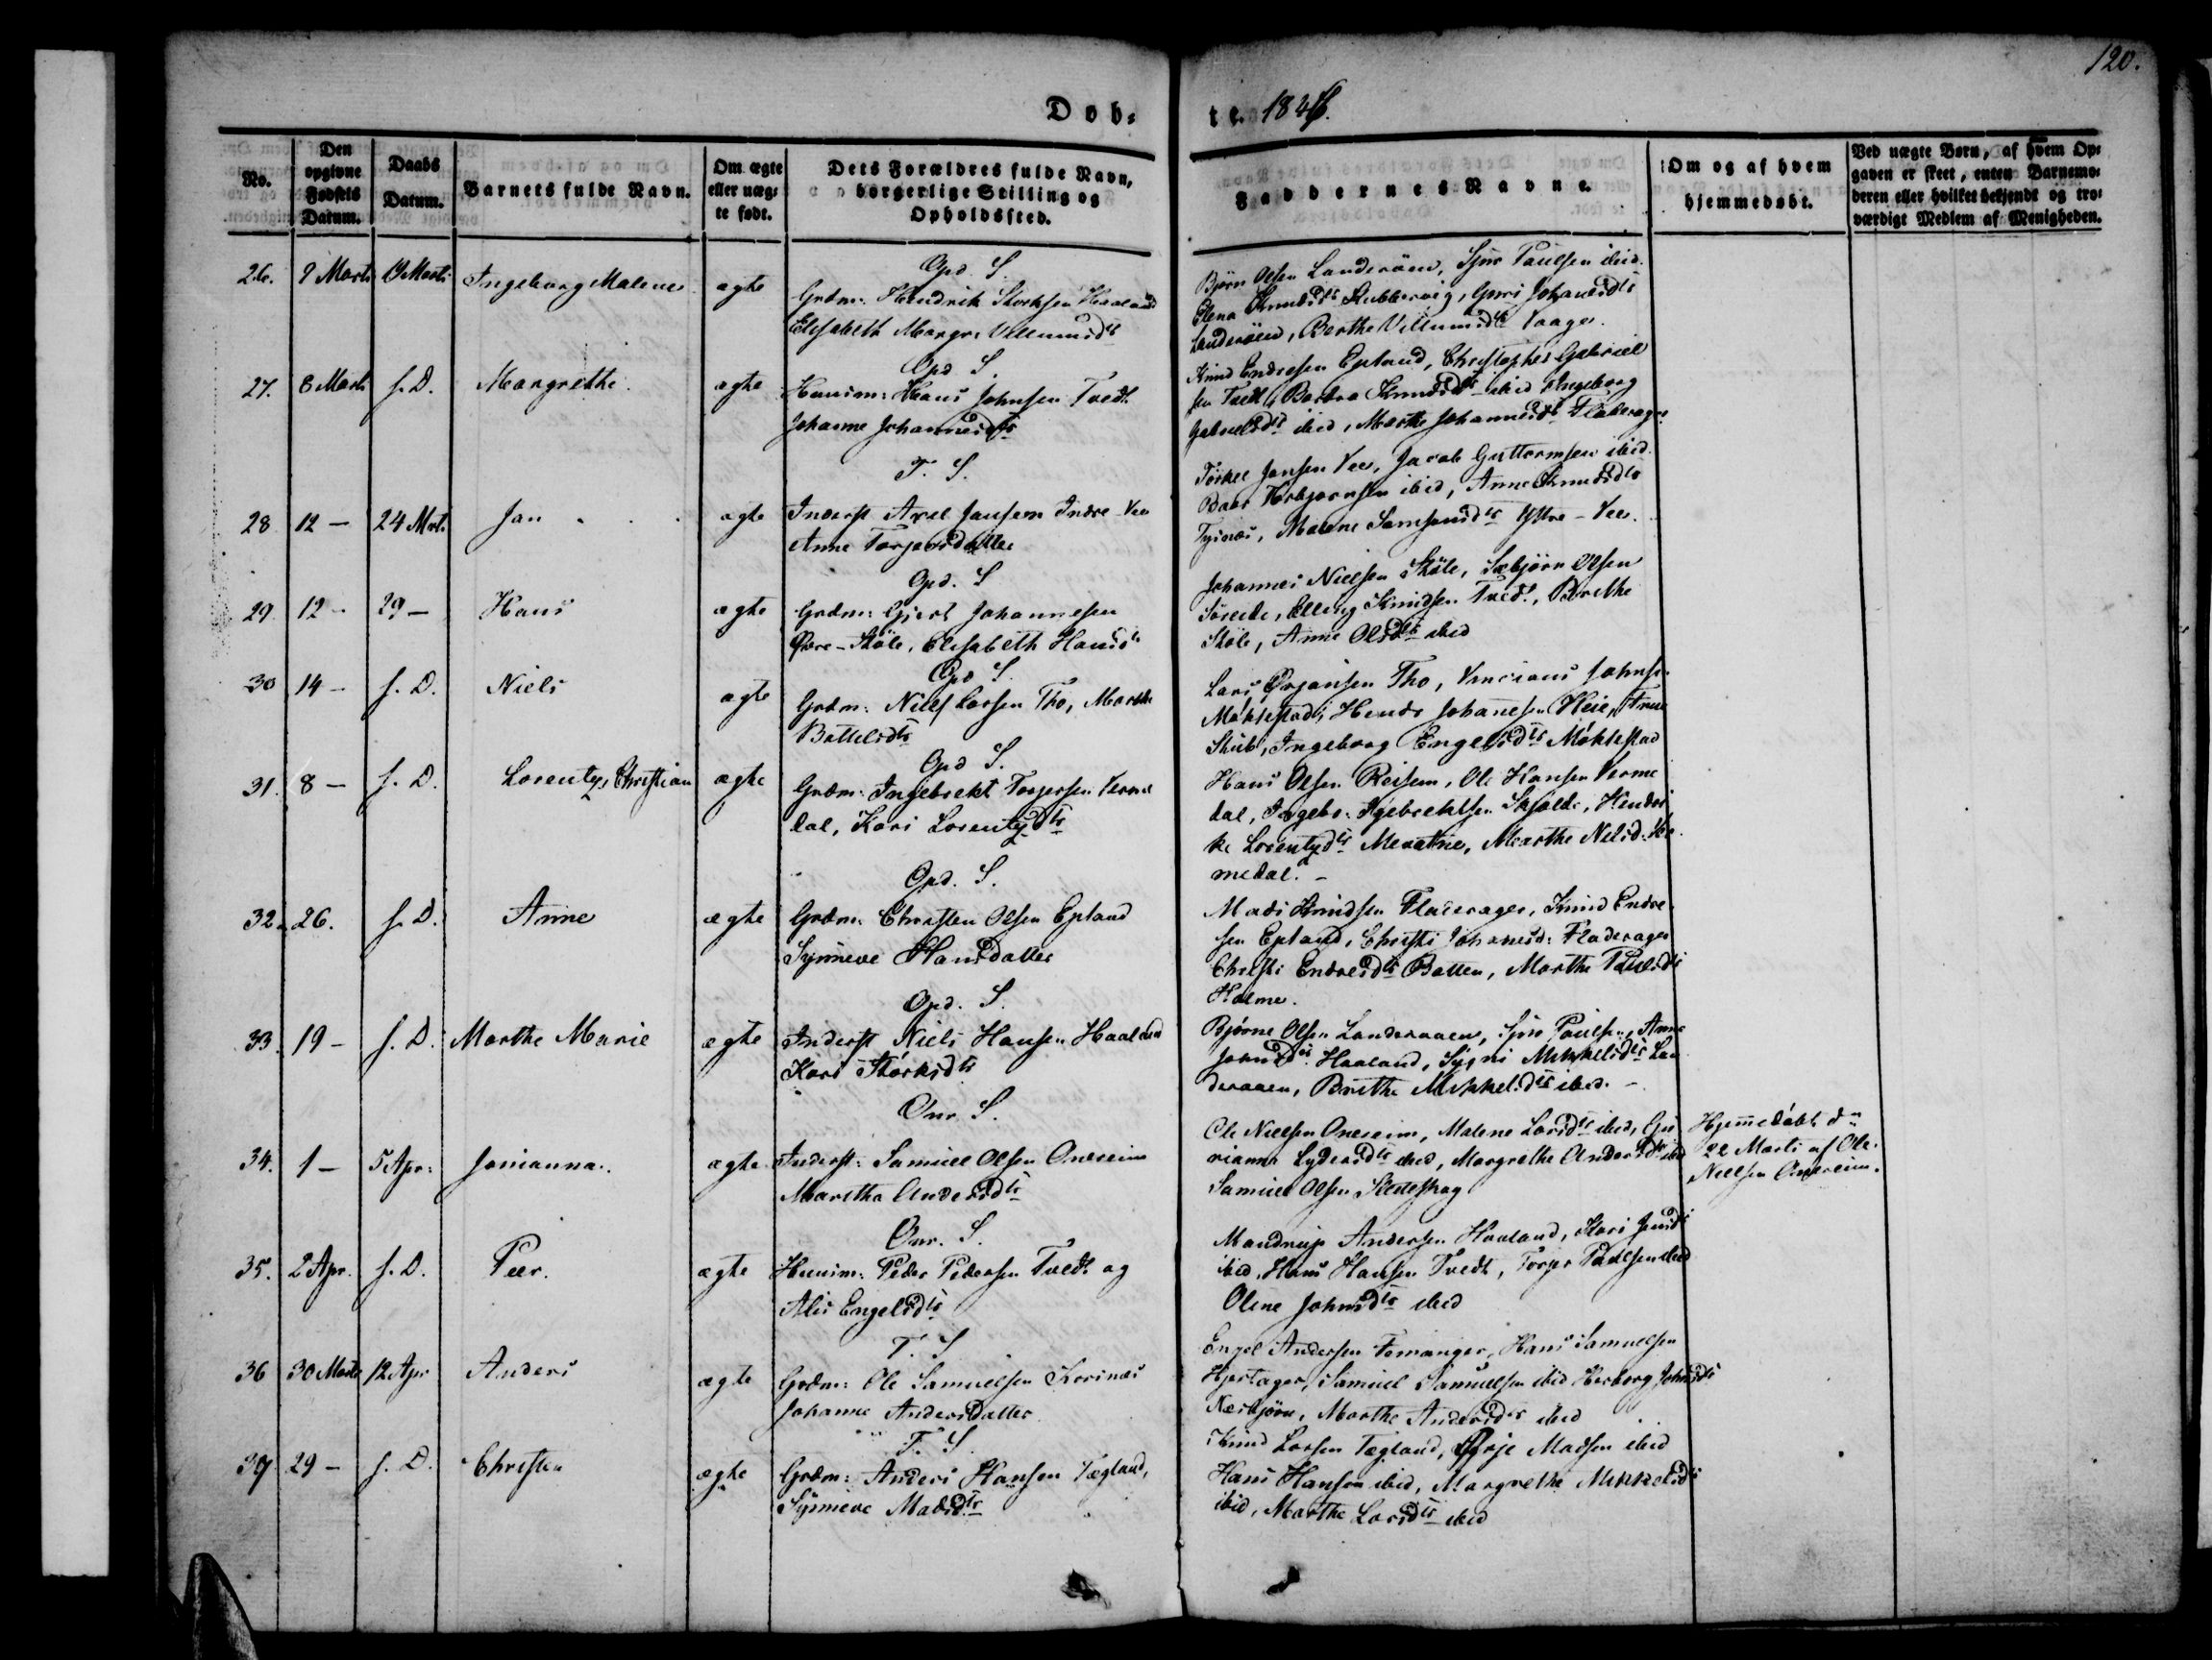 120.
Døb-
te. 1846.
No.
Den
opgivne
Fødsels
Datum.
Daabs
Datum.
Barnets fulde Navn.
Om ægte
eller uæg-
te født.
Dets Forældres fulde Navn,
borgerlige Stilling og
Opholdssted.
Faddernes Navne.
Om og af hvem
hjemmedøbt.
Ved uægte Børn, af hvem Op-
gaven er skeet, enten Barnemo-
deren eller hvilket bekjendt og tro-
værdigt Medlem af Menigheden.
Opd. S.
26. 9 Marts Marts Ingeborg Malene ægte Grdm: Hendrik Storksen Haaland
Elisabeth Margr: Villumsdtr
Bjørn Olsen Landeraaen, Sjur Paulsen ibid.
Olena Knudsdtr Skubbervig, Guri Johansdtr
Landeraaen, Berthe Villumsdtr Vaage.
Opd S.
27. 8 Marts s. D. Margrethe ægte Huusm: Hans Johnsen Tvedt
Johanne Johannesdtr
Knud Endresen Epland, Christopher Gabriel
sen Tvedt, Barbra Knudsdtr ibid Ingeborg
Gabrielsdtr ibid, Marthe Johannesdtr Flaterager
T. S.
28 12 - 24 Mrt. Jan ægte Inderst Axel Jansen Indre Vee
Anne Torgersdatter
Torkel Jansen Vee, Jacob Guttormsen ibid.
Baar Torbjørnsen ibid, Anne Knudsdtr
Tysnæs, Malene Samsonsdtr Ytre - Vee.
Opd. S
29 12 - 29 - Hans ægte Grdm: Gjert Johannesen
Øvre - Støle, Elisabeth Hansd
Johannes Nielsen Støle, Sæbjørn Olsen
Søreide, Elling Knudsen Tvedt, Brethe
Støle, Anne Olsdtr ibid
Opd S.
30 14 - s. D. Niels ægte Grdm: Niels Larsen Tho, Marthe
Bottelsdtr
Lars Ørjansen Tho, Johnse
Møklestad, Hendr Johanesen Heie,
Ingeborg Engelsdtr Møklestad
Opd S.
31. 8 - s. D. Lorentz Christian ægte Grdm: Ingebrekt Torgersen Verme
dal, Kari Lorentzdtr
Hans Olsen Reisem, Ole Hansen Verme
dal, Ingebr: Ingebrektsen Skjelde, Hendri
ke Lorentzdtr Mevatne, Marthe Nielsd: Ve
medal. -
Opd. S.
32. 26. s. D. Anne ægte Grdm: Christen Olsen Epland
Synneve Hansdatter
Mads Knudsen Flaterager, Knud Endre
sen Epland, Christi Johanesd: Fladerager
Christi Endresdtr Batten, Marthe Paulsdtr
Holme.
Opd. S.
33. 19 - s. D. Marthe Marie ægte Inderst Niels Hansen Haaland
Kari Størksdtr
Bjørne Olsen Landeraaen, Sjur Paulsen, Anne
Johnsdtr Haaland, Sygni Mikkelsdtr Lan
deraaen, Brithe Mikkelsdtr ibid. -
Onr. S.
34. 1 - 5 Apr: Johanna. ægte Inderst: Samuel Olsen Onereim
Maritha Andersdtr
Ole Nielsen Onereim, Malene Larsdtr ibid, Gu
rianna Lydersdtr ibid, Margrethe Andersdtr ibid
Samuel Olsen
Hjemmedøbt dn
22 Marts af Ole
Nielsen Onereim.
Onr. S.
35. 2 Apr. s. D. Peer. ægte Huusm: Peder Pedersen Tvedt og
Alis Engelsdtr
Mandrup Andersen Haaland, Kari Jensdtr
ibid, Hans Hansen Tvedt, Torger Paulsen ibid
Olene Johnsdtr ibid
T. S
36 30 Marts 12 Apr Anders ægte Grdm: Ole Samuelsen Korsnæs
Johanne Andersdatter
Engel Andersen Femanger, Hans Samuelsen
Hjertager, Samuel Samuelsen ibid Herborg Johnsdtr
Næsbjørn, Marthe Andersdtr ibid
T. S.
37 29 - s. D. Christen ægte Grdm: Anders Hansen Tægland,
Synneve Madsdtr
Knud Larsen Tægland, Ørje Madsen ibid
Hans Hansen ibid, Margrethe Mikkelsdtr
ibid, Marthe Larsdtr ibid